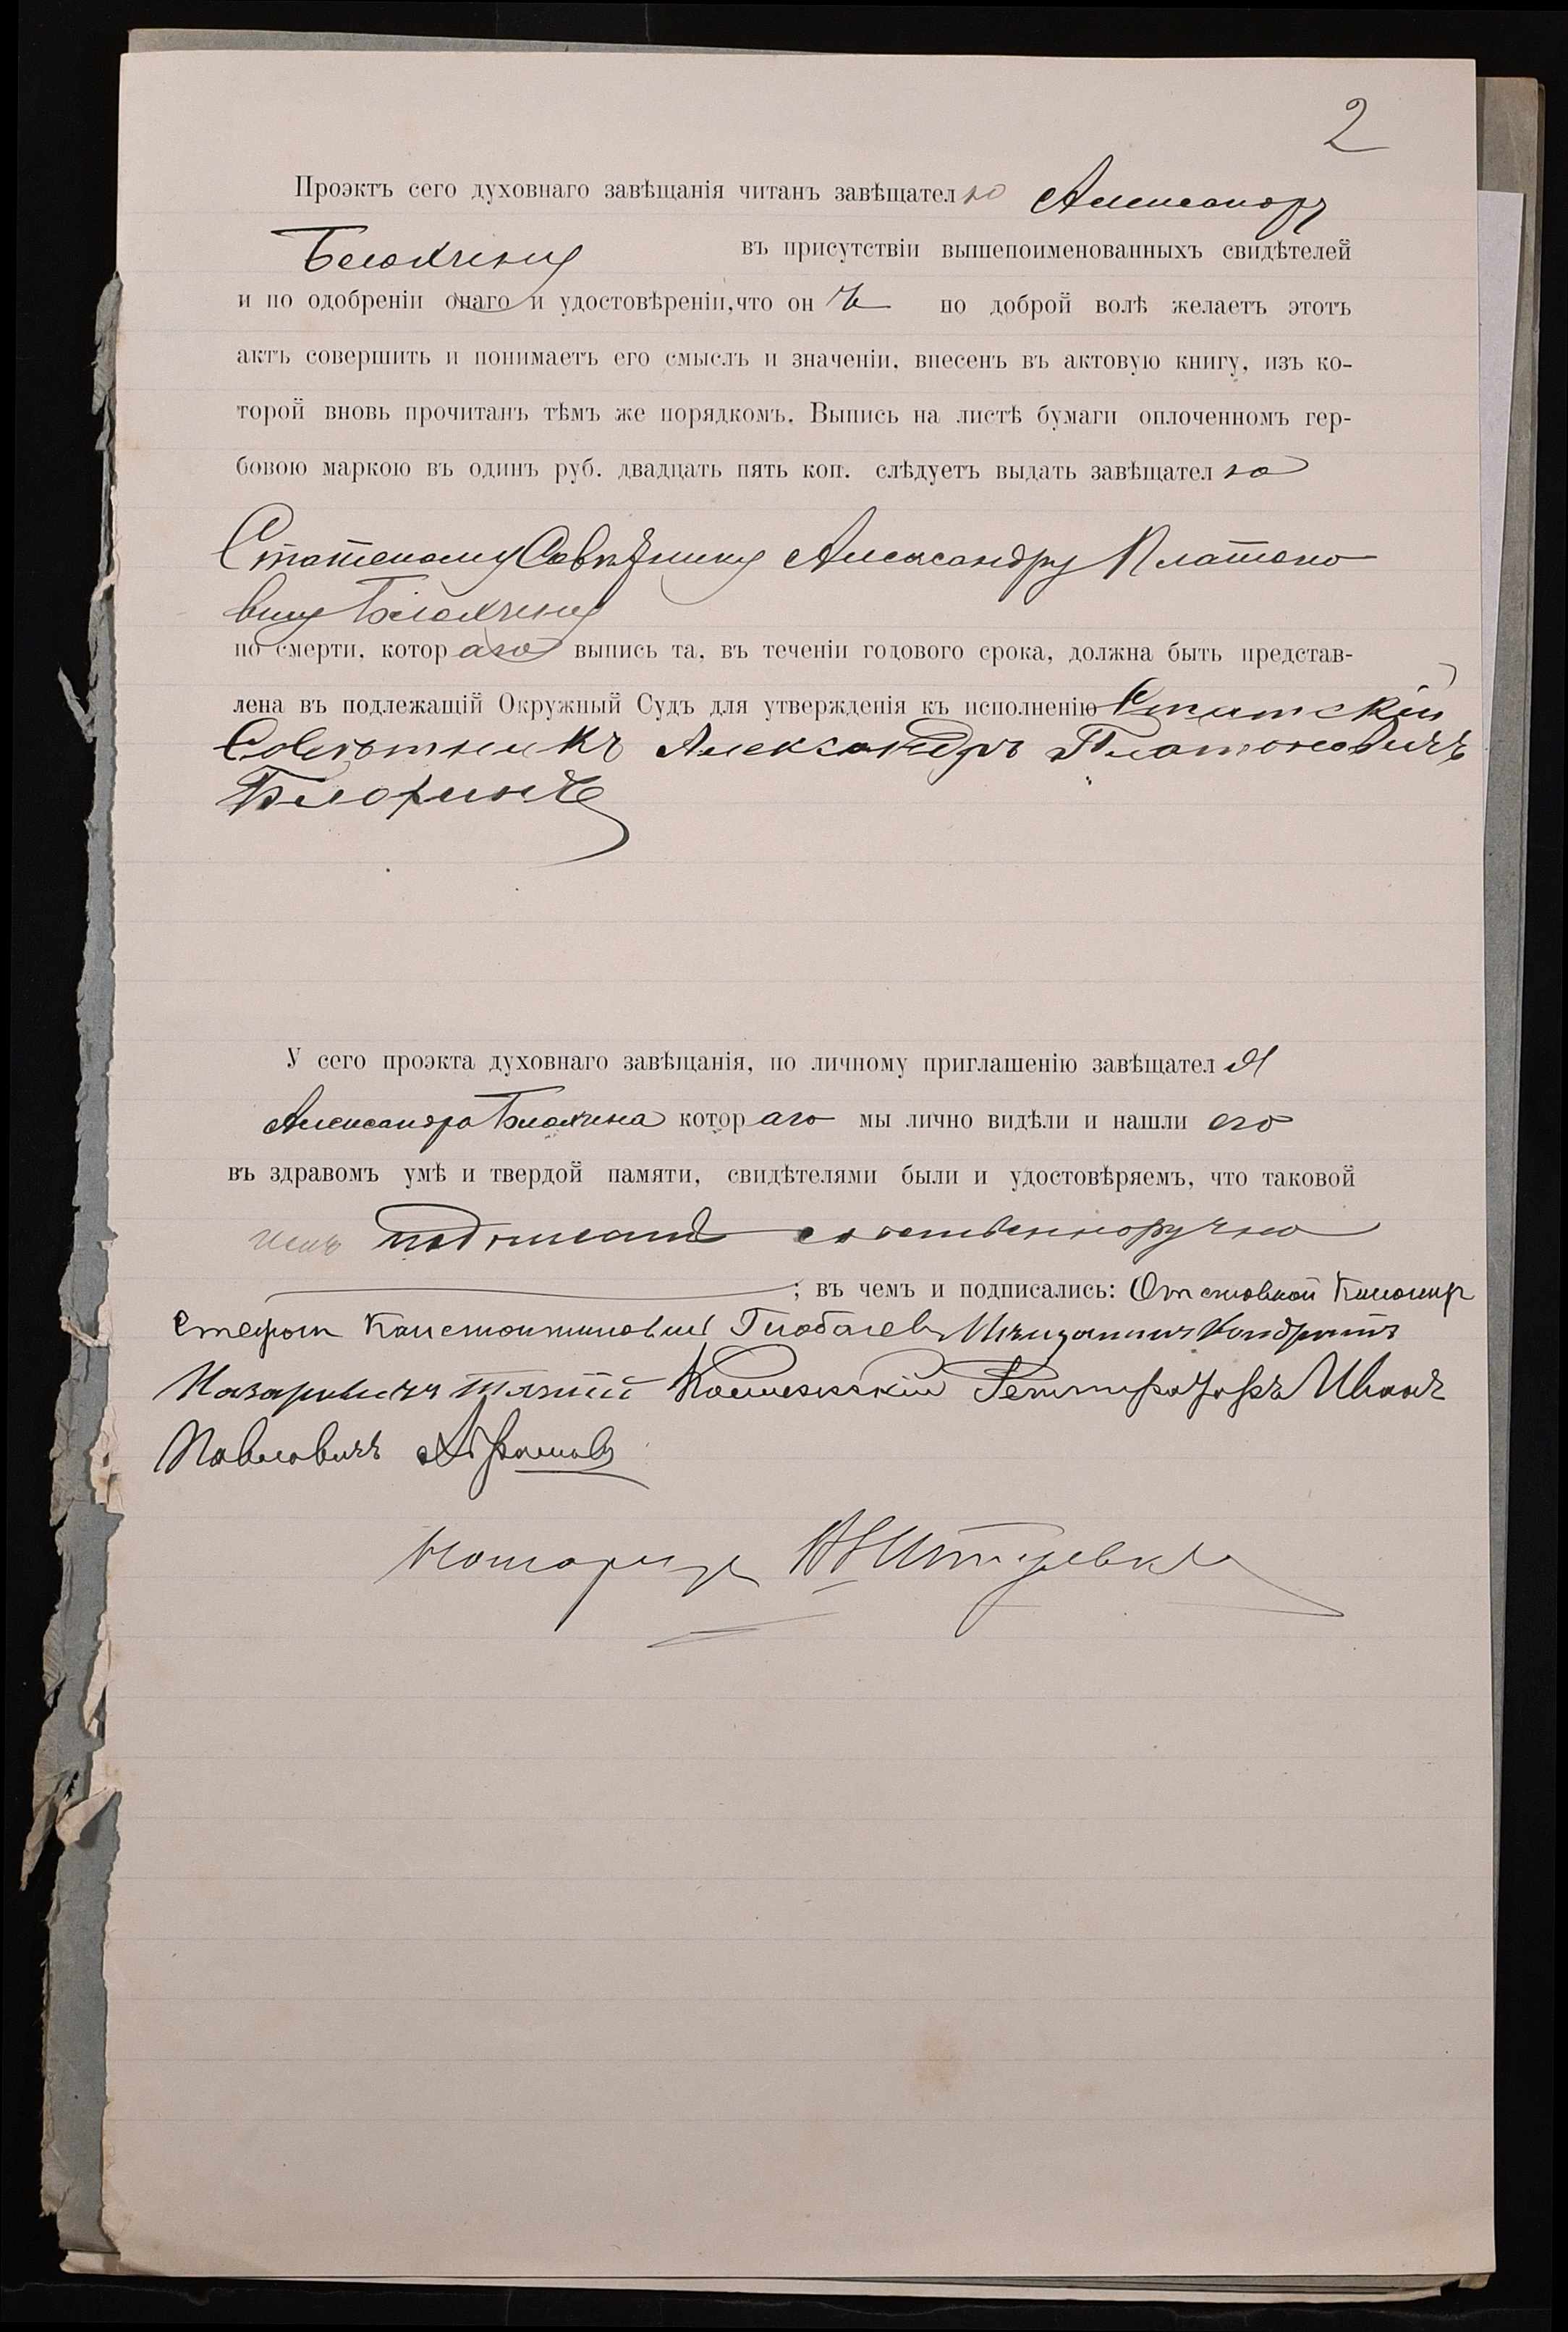 2
Проэктъ сего духовнаго завѣщанія читанъ завѣщателю Александру
Белюхину въ присутствіи вышепоименованныхъ свидѣтелей
и по одобреніи онаго и удостовѣреніи, что онъ по доброй волѣ желаетъ этотъ
актъ совершить и понимаетъ его смыслъ и значеніи, внесенъ въ актовую книгу, изъ ко-
торой вновь прочитанъ тѣмъ же порядкомъ. Выпись на листѣ бумаги оплоченномъ гер-
бовою маркою въ одинъ руб. двадцать пять коп. слѣдуетъ выдать завѣщателю
Статскому Совѣтнику Александру Платоно
вичу
по смерти, котораго выпись та, въ теченіи годового срока, должна быть представ-
лена въ подлежащій Окружный Судъ для утвержденія къ исполненію Статскій
Совѣтникъ Александръ Платоновичъ
У сего проэкта духовнаго завѣщанія, по личному приглашенію завѣщателя
Александра котораго мы лично видѣли и нашли его
въ здравомъ умѣ и твердой памяти, свидѣтелями были и удостовѣряемъ, что таковой
имъ подписанъ собственноручно
; въ чемъ и подписались: Отставной
Стефанъ Константиновичъ Кондратъ
Назарьевичъ Коллежскій Регистраторъ Иванъ
Павловичъ Абрамовъ
Нотаріусъ